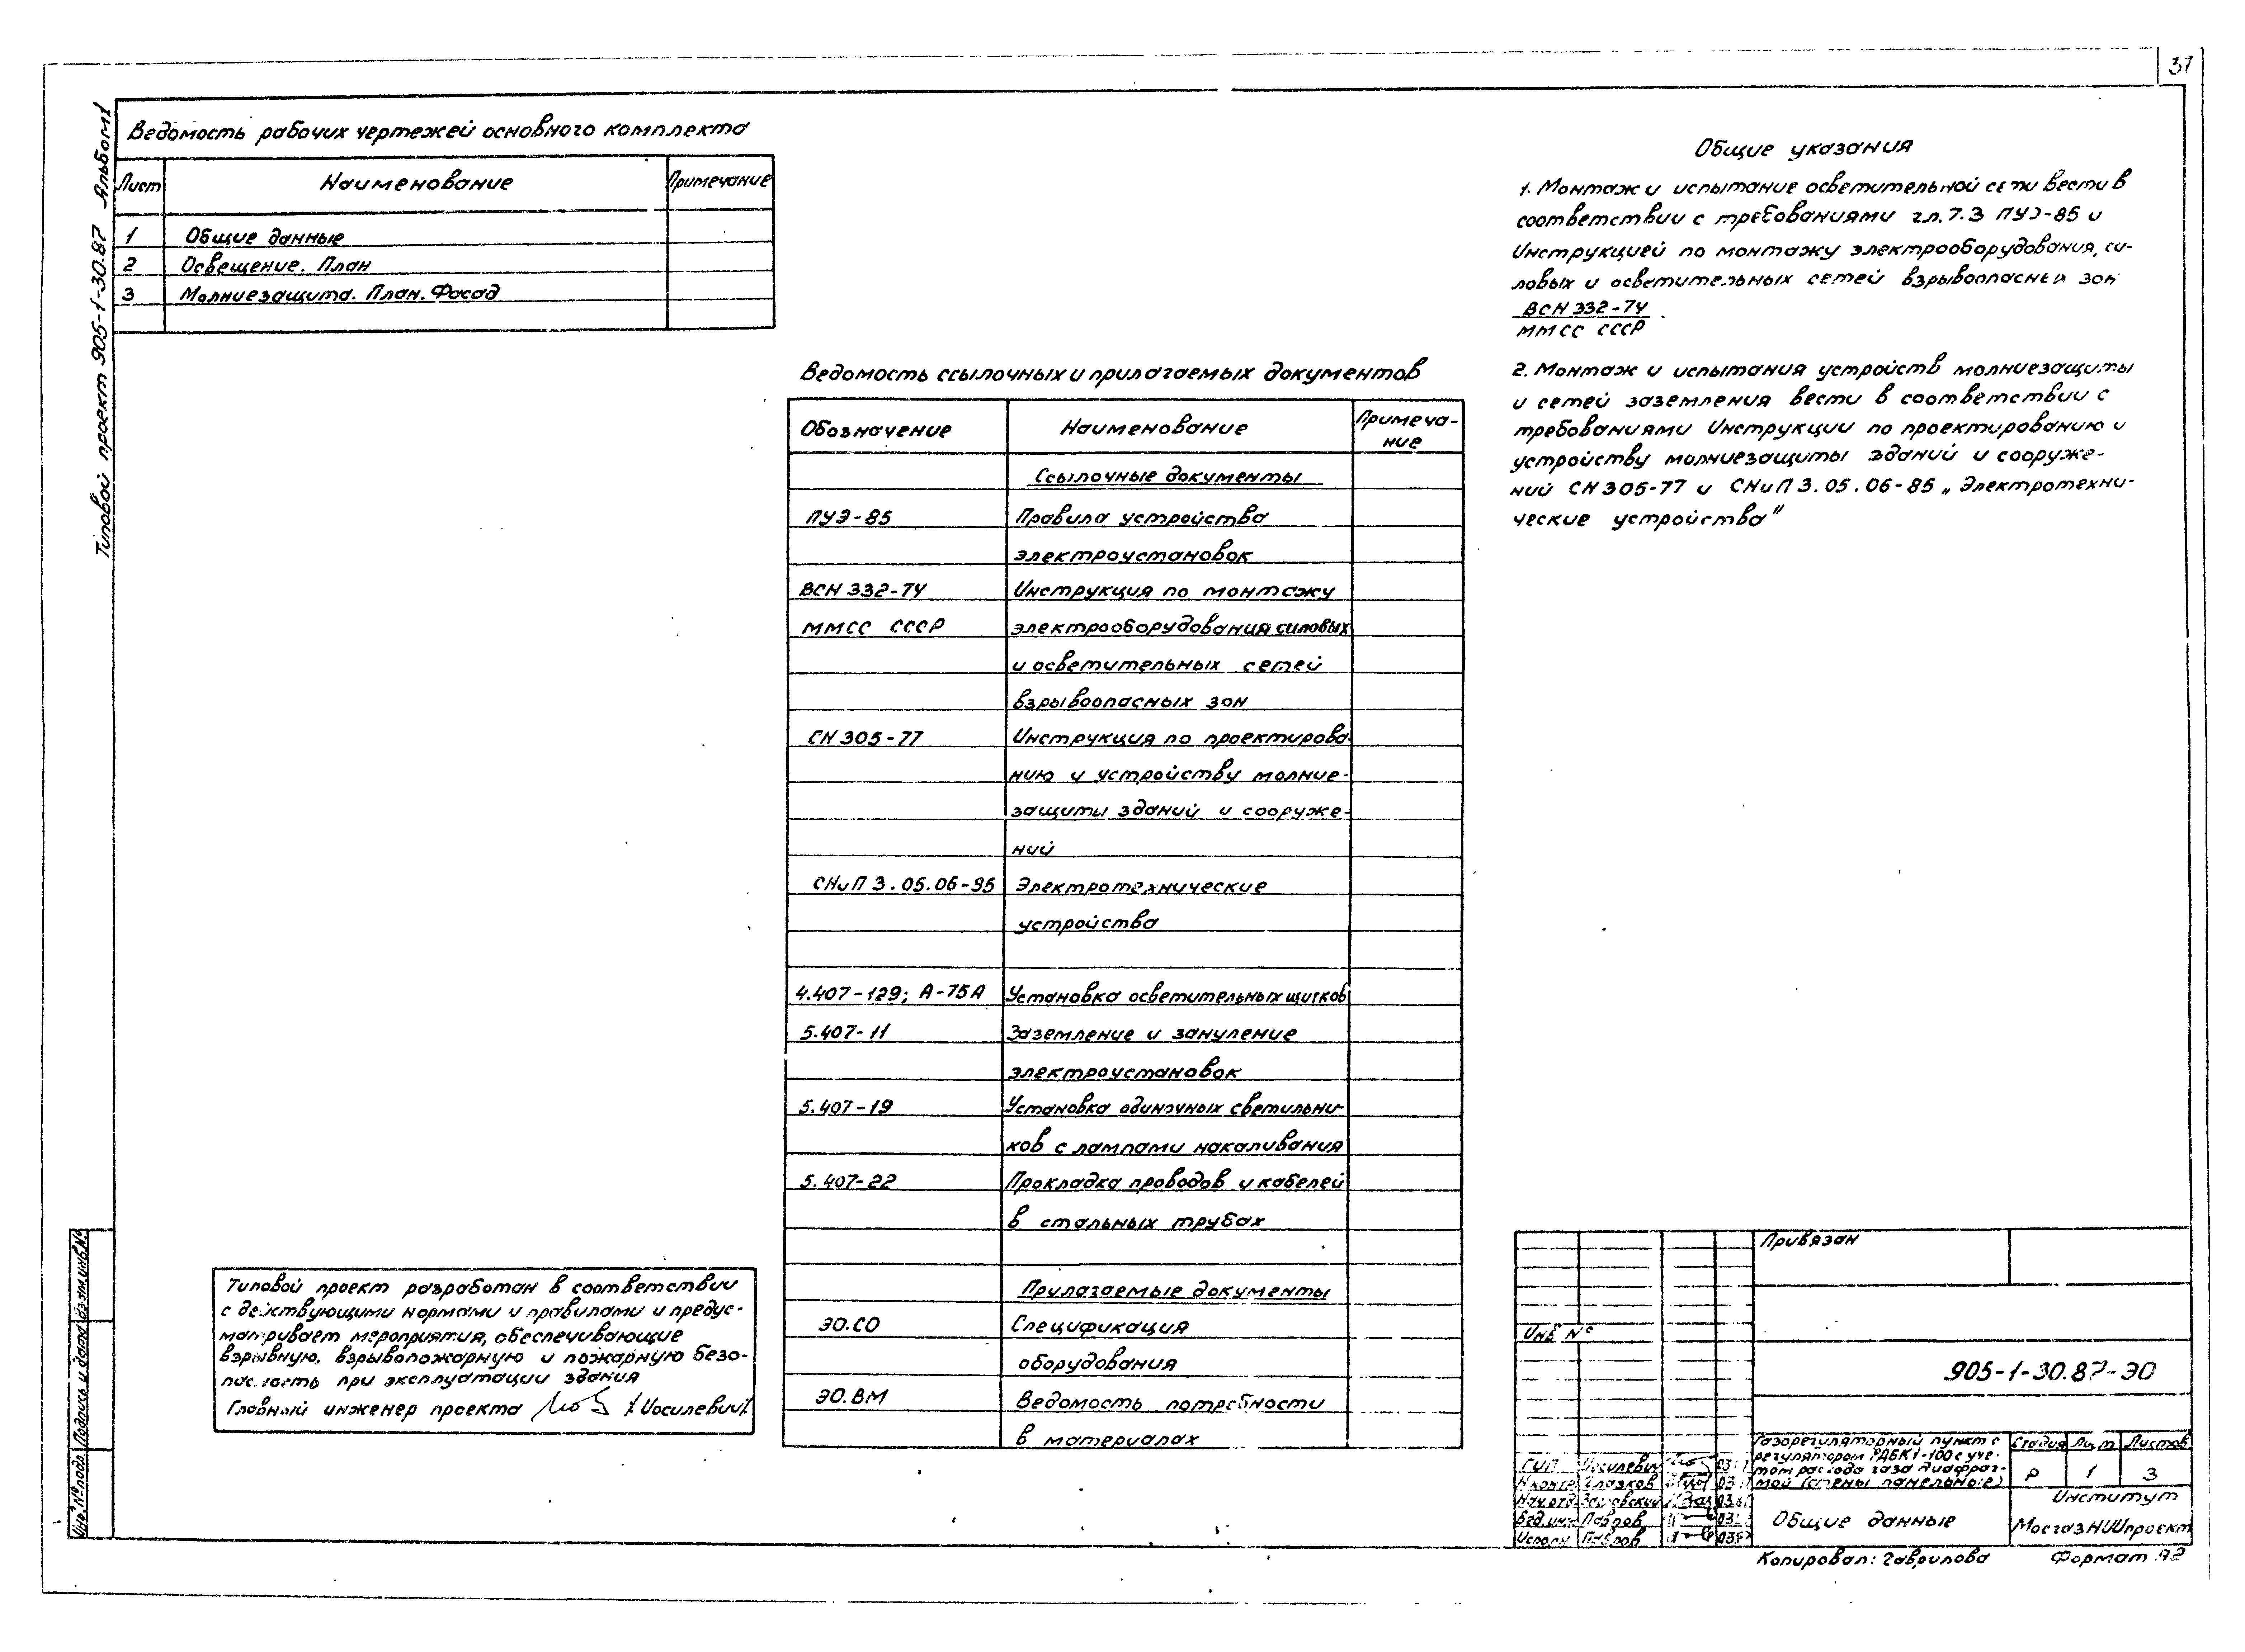 37
Типовой проект 905-1-30.87 Альбом 1
Ведомость рабочих чертежей основного комплекта
Лист Наименование Примечание
1 Общие данные
2 Освещение. План
3 Молниезащита. План. Фасад
Общие указания
1. Монтаж и испытание осветительной сети вести в
соответствии с требованиями гл. 7.3 ПУЭ-85 и
Инструкцией по монтажу электрооборудования, си-
ловых и осветительных сетей взрывоопасных зон
ВСН 332-74
ММСС СССР
2. Монтаж и испытания устройств молниезащиты
и сетей заземления вести в соответствии с
требованиями Инструкции по проектированию и
устройству молниезащиты зданий и сооруже-
ний СН 305-77 и СНиП 3.05.06-85 „Электротехни-
ческие устройства"
Ведомость ссылочных и прилагаемых документов
Обозначение Наименование Примеча-
ние
Ссылочные документы
ПУЭ-85 Правила устройства
электроустановок
ВСН 332-74 Инструкция по монтажу
ММСС СССР электрооборудования силовых
и осветительных сетей
взрывоопасных зон
СН 305-77 Инструкция по проектирова-
нию и устройству молние-
защиты зданий и сооруже-
ний
СНиП 3.05.06-85 Электротехнические
устройства
4.407-129; А-75А Установка осветительных щитков
5.407-11 Заземление и зануление
электроустановок
5.407-19 Установка одиночных светильни-
ков с лампами накаливания
5.407-22 Прокладка проводов и кабелей
в стальных трубах
Прилагаемые документы
ЭО.СО Спецификация
оборудования
ЭО.ВМ Ведомость потребности
в материалах
Типовой проект разработан в соответствии
с действующими нормами и правилами и предус-
матривает мероприятия, обеспечивающие
взрывную, взрывопожарную и пожарную безо-
пасность при эксплуатации здания
Главный инженер проекта /Иосилевич/
Инв.№ подл. Подпись и дата Взам.инв.№
Привязан
Инв №
905-1-30.87-ЭО
Газорегуляторный пункт с
регулятором РДБК1-100 с уче-
том расхода газа диафраг-
мой (стены панельные)
Стадия Лист Листов
Р 1 3
ГИП Иосилевич
Н.контр. Глазков
Нач.отд.
Вед.инж. Павлов
Исполн. Павлов
Общие данные
Институт
МосгазНИИпроект
Копировал: Гаврилова Формат А2